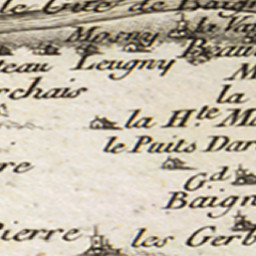 le Gué de Baign
la Vau
Mosny
Beau
teau Leugny
M
rchais
la
la H.te Ma
le Puits Dar
re
G.d
Baign
Pierre
les Gerb